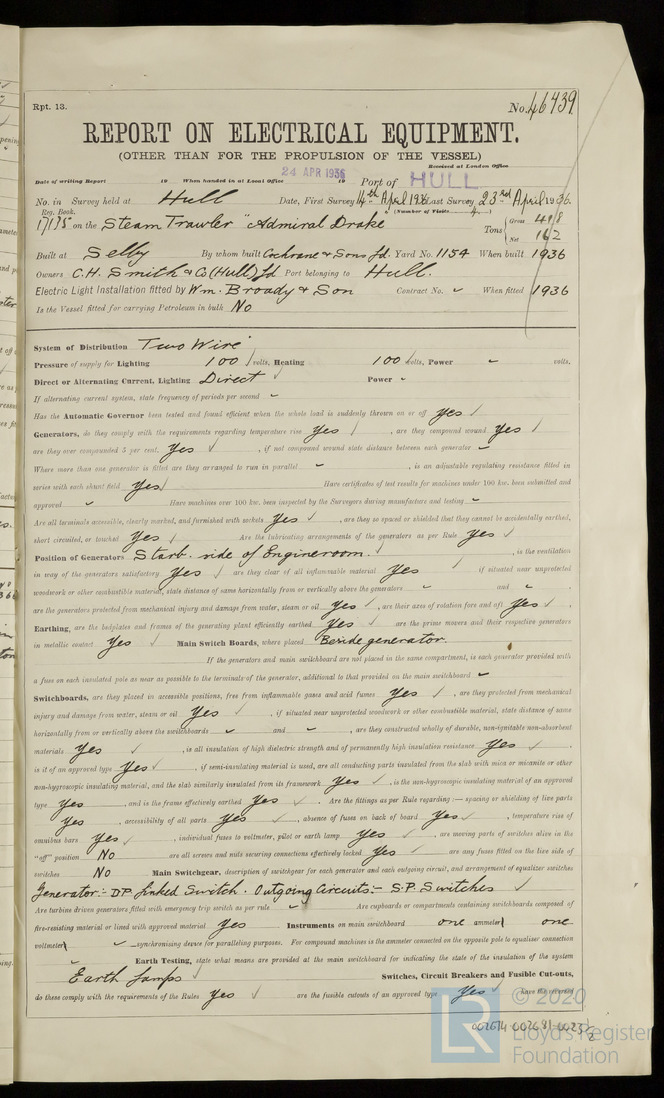 Rpt. 13.
No. 46439
REPORT ON ELECTRICAL EQUIPMENT.
(OTHER THAN FOR THE PROPULSION OF THE VESSEL)
Received at London Office
24 APR 1936
Date of writing Report 19 When handed in at Local Office 19 Port of HULL
No. in Survey held at Hull Date, First Survey 14th April 1936 Last Survey 23rd April 1936
Reg. Book. (Number of Visits 4)
17175 on the Steam Trawler "Admiral Drake Tons { Gross 418
Net 162
Built at Selby By whom built Cochrane & Sons Ld. Yard No. 1154 When built 1936
Owners C.H. Smith & Co (Hull) Ld Port belonging to Hull.
Electric Light Installation fitted by Wm. Broady & Son Contract No. - When fitted 1936
Is the Vessel fitted for carrying Petroleum in bulk No
System of Distribution Two Wire
Pressure of supply for Lighting 100 volts, Heating 100 volts, Power - volts,
Direct or Alternating Current, Lighting Direct Power -
If alternating current system, state frequency of periods per second -
Has the Automatic Governor been tested and found efficient when the whole load is suddenly thrown on or off yes
Generators, do they comply with the requirements regarding temperature rise Yes , are they compound wound Yes
are they over compounded 5 per cent. Yes , if not compound wound state distance between each generator -
Where more than one generator is fitted are they arranged to run in parallel - , is an adjustable regulating resistance fitted in
series with each shunt field Yes Have certificates of test results for machines under 100 kw. been submitted and
approved - Have machines over 100 kw. been inspected by the Surveyors during manufacture and testing -
Are all terminals accessible, clearly marked, and furnished with sockets Yes , are they so spaced or shielded that they cannot be accidentally earthed,
short circuited, or touched Yes Are the lubricating arrangements of the generators as per Rule Yes
Position of Generators Starb. side of Engineroom. , is the ventilation
in way of the generators satisfactory Yes , are they clear of all inflammable material Yes if situated near unprotected
woodwork or other combustible material, state distance of same horizontally from or vertically above the generators - and -
are the generators protected from mechanical injury and damage from water, steam or oil Yes , are their axes of rotation fore and aft Yes
Earthing, are the bedplates and frames of the generating plant efficiently earthed Yes are the prime movers and their respective generators
in metallic contact Yes Main Switch Boards, where placed Beside generator
If the generators and main switchboard are not placed in the same compartment, is each generator provided with
a fuse on each insulated pole as near as possible to the terminals of the generator, additional to that provided on the main switchboard -
Switchboards, are they placed in accessible positions, free from inflammable gases and acid fumes Yes , are they protected from mechanical
injury and damage from water, steam or oil Yes , if situated near unprotected woodwork or other combustible material, state distance of same
horizontally from or vertically above the switchboards - and - , are they constructed wholly of durable, non-ignitable non-absorbent
materials Yes , is all insulation of high dielectric strength and of permanently high insulation resistance Yes
is it of an approved type Yes , if semi-insulating material is used, are all conducting parts insulated from the slab with mica or micanite or other
non-hygroscopic insulating material, and the slab similarly insulated from its framework Yes , is the non-hygroscopic insulating material of an approved
type Yes , and is the frame effectively earthed Yes . Are the fittings as per Rule regarding :— spacing or shielding of live parts
Yes , accessibility of all parts Yes , absence of fuses on back of board Yes , temperature rise of
omnibus bars Yes , individual fuses to voltmeter, pilot or earth lamp Yes , are moving parts of switches alive in the
"off" position No are all screws and nuts securing connections effectively locked Yes are any fuses fitted on the live side of
switches No Main Switchgear, description of switchgear for each generator and each outgoing circuit, and arrangement of equalizer switches
Generator:- D.P. linked Switch. Outgoing Circuits:- S.P. Switches
Are turbine driven generators fitted with emergency trip switch as per rule - Are cupboards or compartments containing switchboards composed of
fire-resisting material or lined with approved material Yes Instruments on main switchboard one ammeter one
voltmeter - synchronising device for paralleling purposes. For compound machines is the ammeter connected on the opposite pole to equaliser connection
- Earth Testing, state what means are provided at the main switchboard for indicating the state of the insulation of the system
Earth Lamps Switches, Circuit Breakers and Fusible Cut-outs,
do these comply with the requirements of the Rules Yes are the fusible cutouts of an approved type Yes have the reversed
© 2020
Lloyd's Register
Foundation